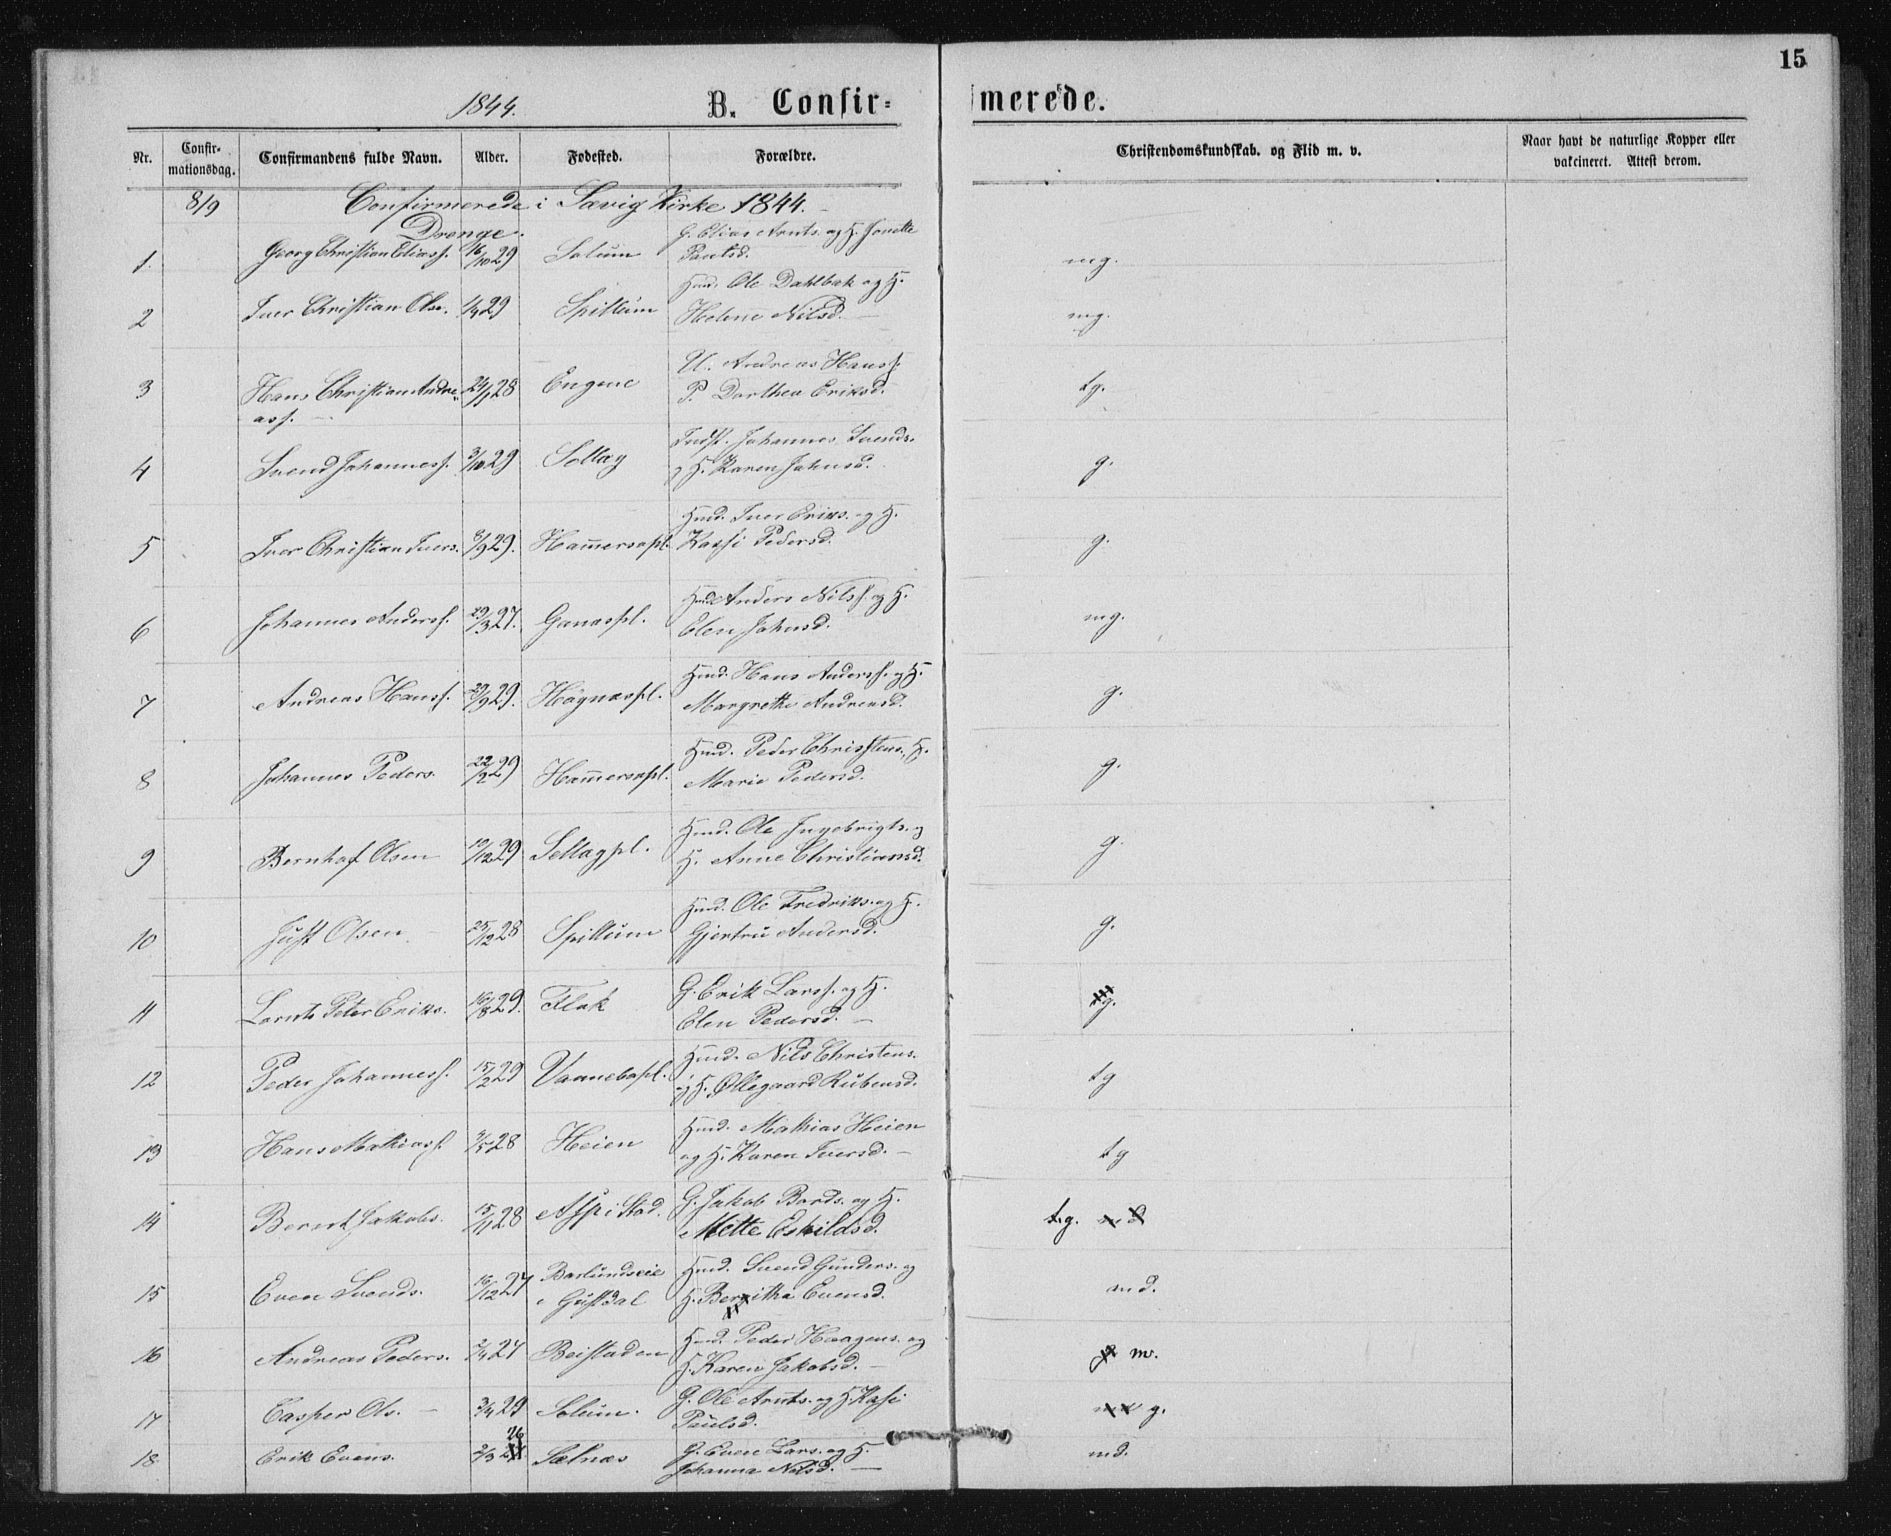 15
1844.
B. Confir-
merede.
Nr.
Confir-
mationsdag.
Confirmandens fulde Navn.
Alder.
Fødested.
Forældre.
Christendomskundskab. og Flid m. v.
Naar havt de naturlige Kopper eller
vakcineret. Attest derom.
8/9 Confirmerede i Sævig Kirke 1844.
Drenge.
G. Elias Arnts. og H. Jonette
1. Georg Christian Eliass. 16/10 29 Solum Paulsd. mg.
Hmd. Ole Dahlbak og H.
2 Iver Christian Ols. 29 Spillum Helene Nilsd. mg.
U. Andreas Hanss.
3 Hans Christian Andre- 24/1 28 Engene P. Dorthea Eriksd. tg.
ass.
Indst. Johannes Svends.
4 Svend Johanness. 3/10 29 Sellæg og H. Karen Johnsd. g.
Hmd. Iver Eriks. og H.
5 Iver Christian Ivers. 8/9 29. Hammersapl. Kassi Pedersd. g.
Hmd. Anders Nilss. og H.
6 Johannes Anderss. 29/3 27. Ganaspl. Elen Johnsd. mg.
Hmd. Hans Anderss. og H.
7 Andreas Hanss. 29. Högnaspl. Margrethe Andreasd. g.
Hmd. Peder Christens. H.
8 Johannes Peders. 22/2 29 Hammersapl. Marie Pedersd. g.
Hmd. Ole Ingebrigts. og
9 Bernhof Olsen 19/12 29 Sellægpl. H. Anne Christiansd. g.
Hmd. Ole Fredriks. og H.
10 Just Olsen 25/12 28 Spillum Gjertru Andersd. g.
G. Erik Larss. og H.
11 Lornts Peter Eriks. 16/8 29. Flak Elen Pedersd. g.
Hmd. Nils Christens.
12 Peder Johanness. 15/2 29 Vannebapl. og H. Ollegaard Rubensd. tg
Hmd. Mathias Heien
13 Hans Mathiass. 28 Heien og H. Karen Iversd. tg
G. Jakob Bards. og H.
14 Bernt Jakobs. 15/11 28 Asp i Stod. Mette Eskildsd. tg. md
Barlundseie Hmd. Svend Gunders. og
15 Even Svends. 16/12 27 i Gustdal H. Beritha Evensd. md.
Hmd. Peder Haagens. og
16 Andreas Peders. 2/4 27 Beistaden H. Karen Jakobsd. m.
G. Ole Arnts. og H. Kasi
17 Casper Ols. 3/4 29 Solum. Paulsd. g.
26
G. Even Lars. og H.
18 Erik Evens. 2/3 Sælnæs Johanna Nilsd. md.